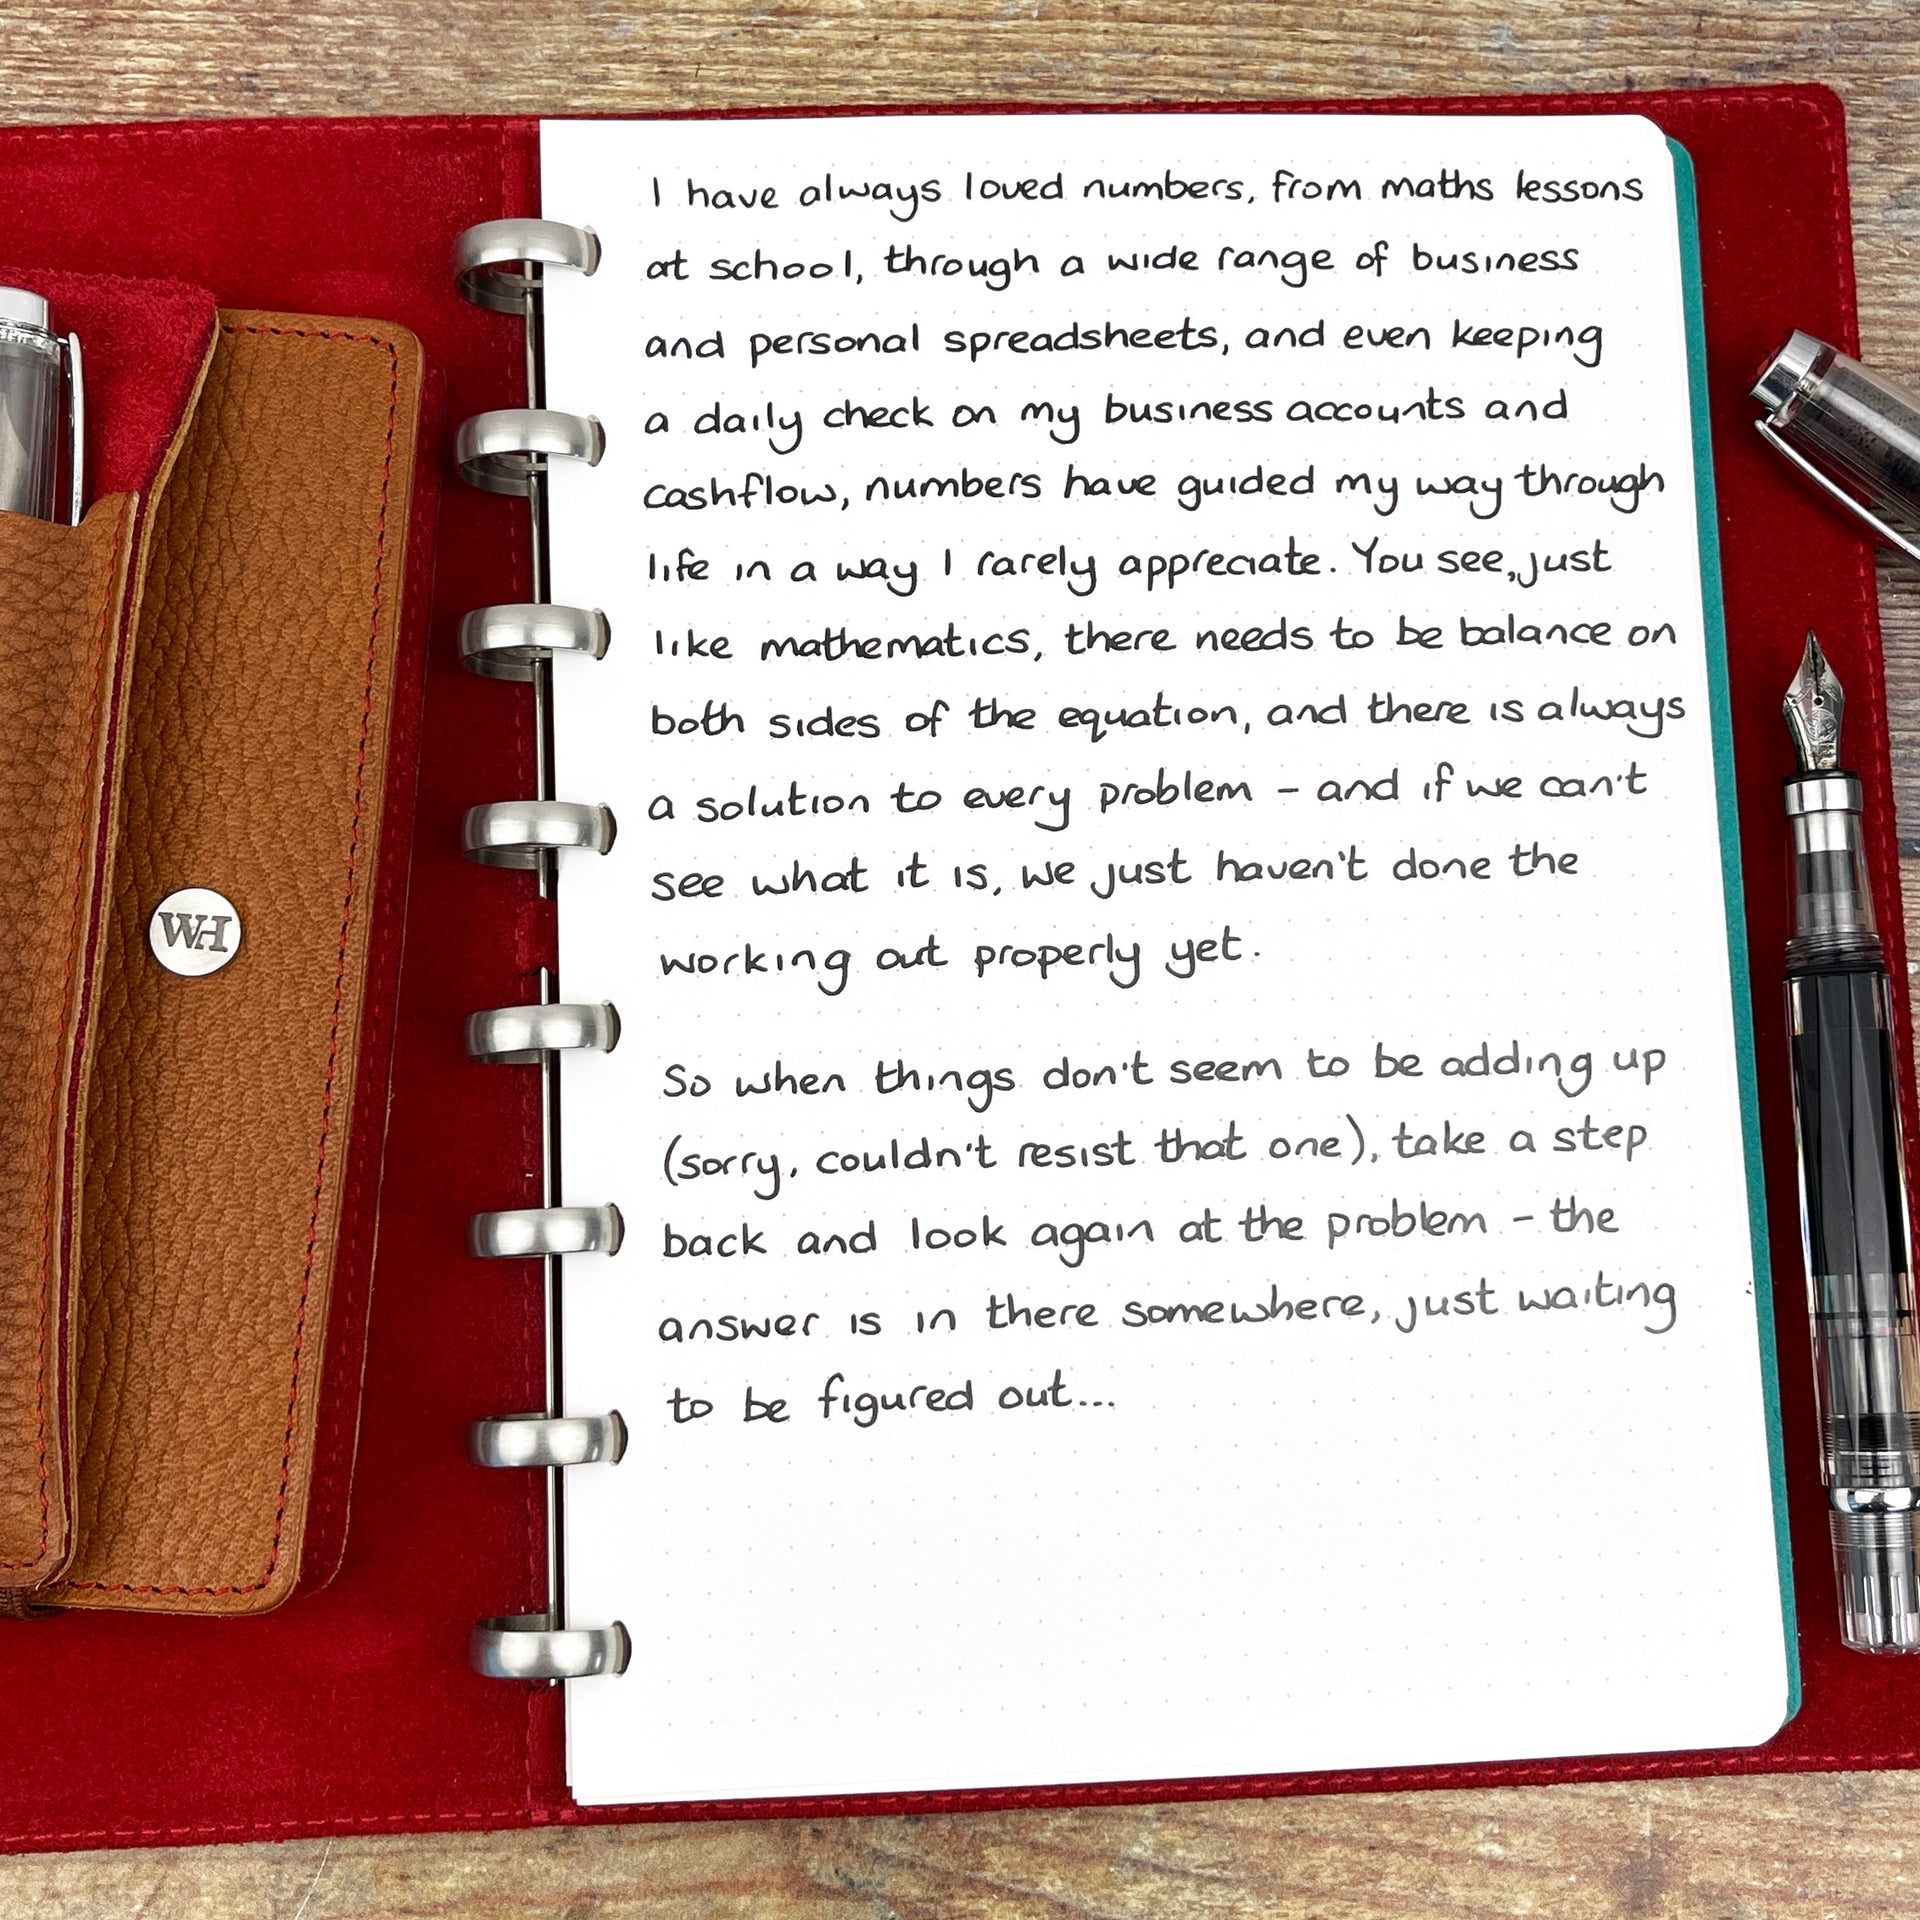 I have always loved numbers, from maths lessons
at school, through a wide range of business
and personal spreadsheets, and even keeping
a daily check on my business accounts and
cashflow, numbers have guided my way through
life in a way I rarely appreciate. You see, just
like mathematics, there needs to be balance on
both sides of the equation, and there is always
a solution to every problem - and if we can't
see what it is, we just haven't done the
working out properly yet.
So when things don't seem to be adding up
(sorry, couldn't resist that one), take a step
back and look again at the problem - the
answer is in there somewhere, just waiting
to be figured out...
WH